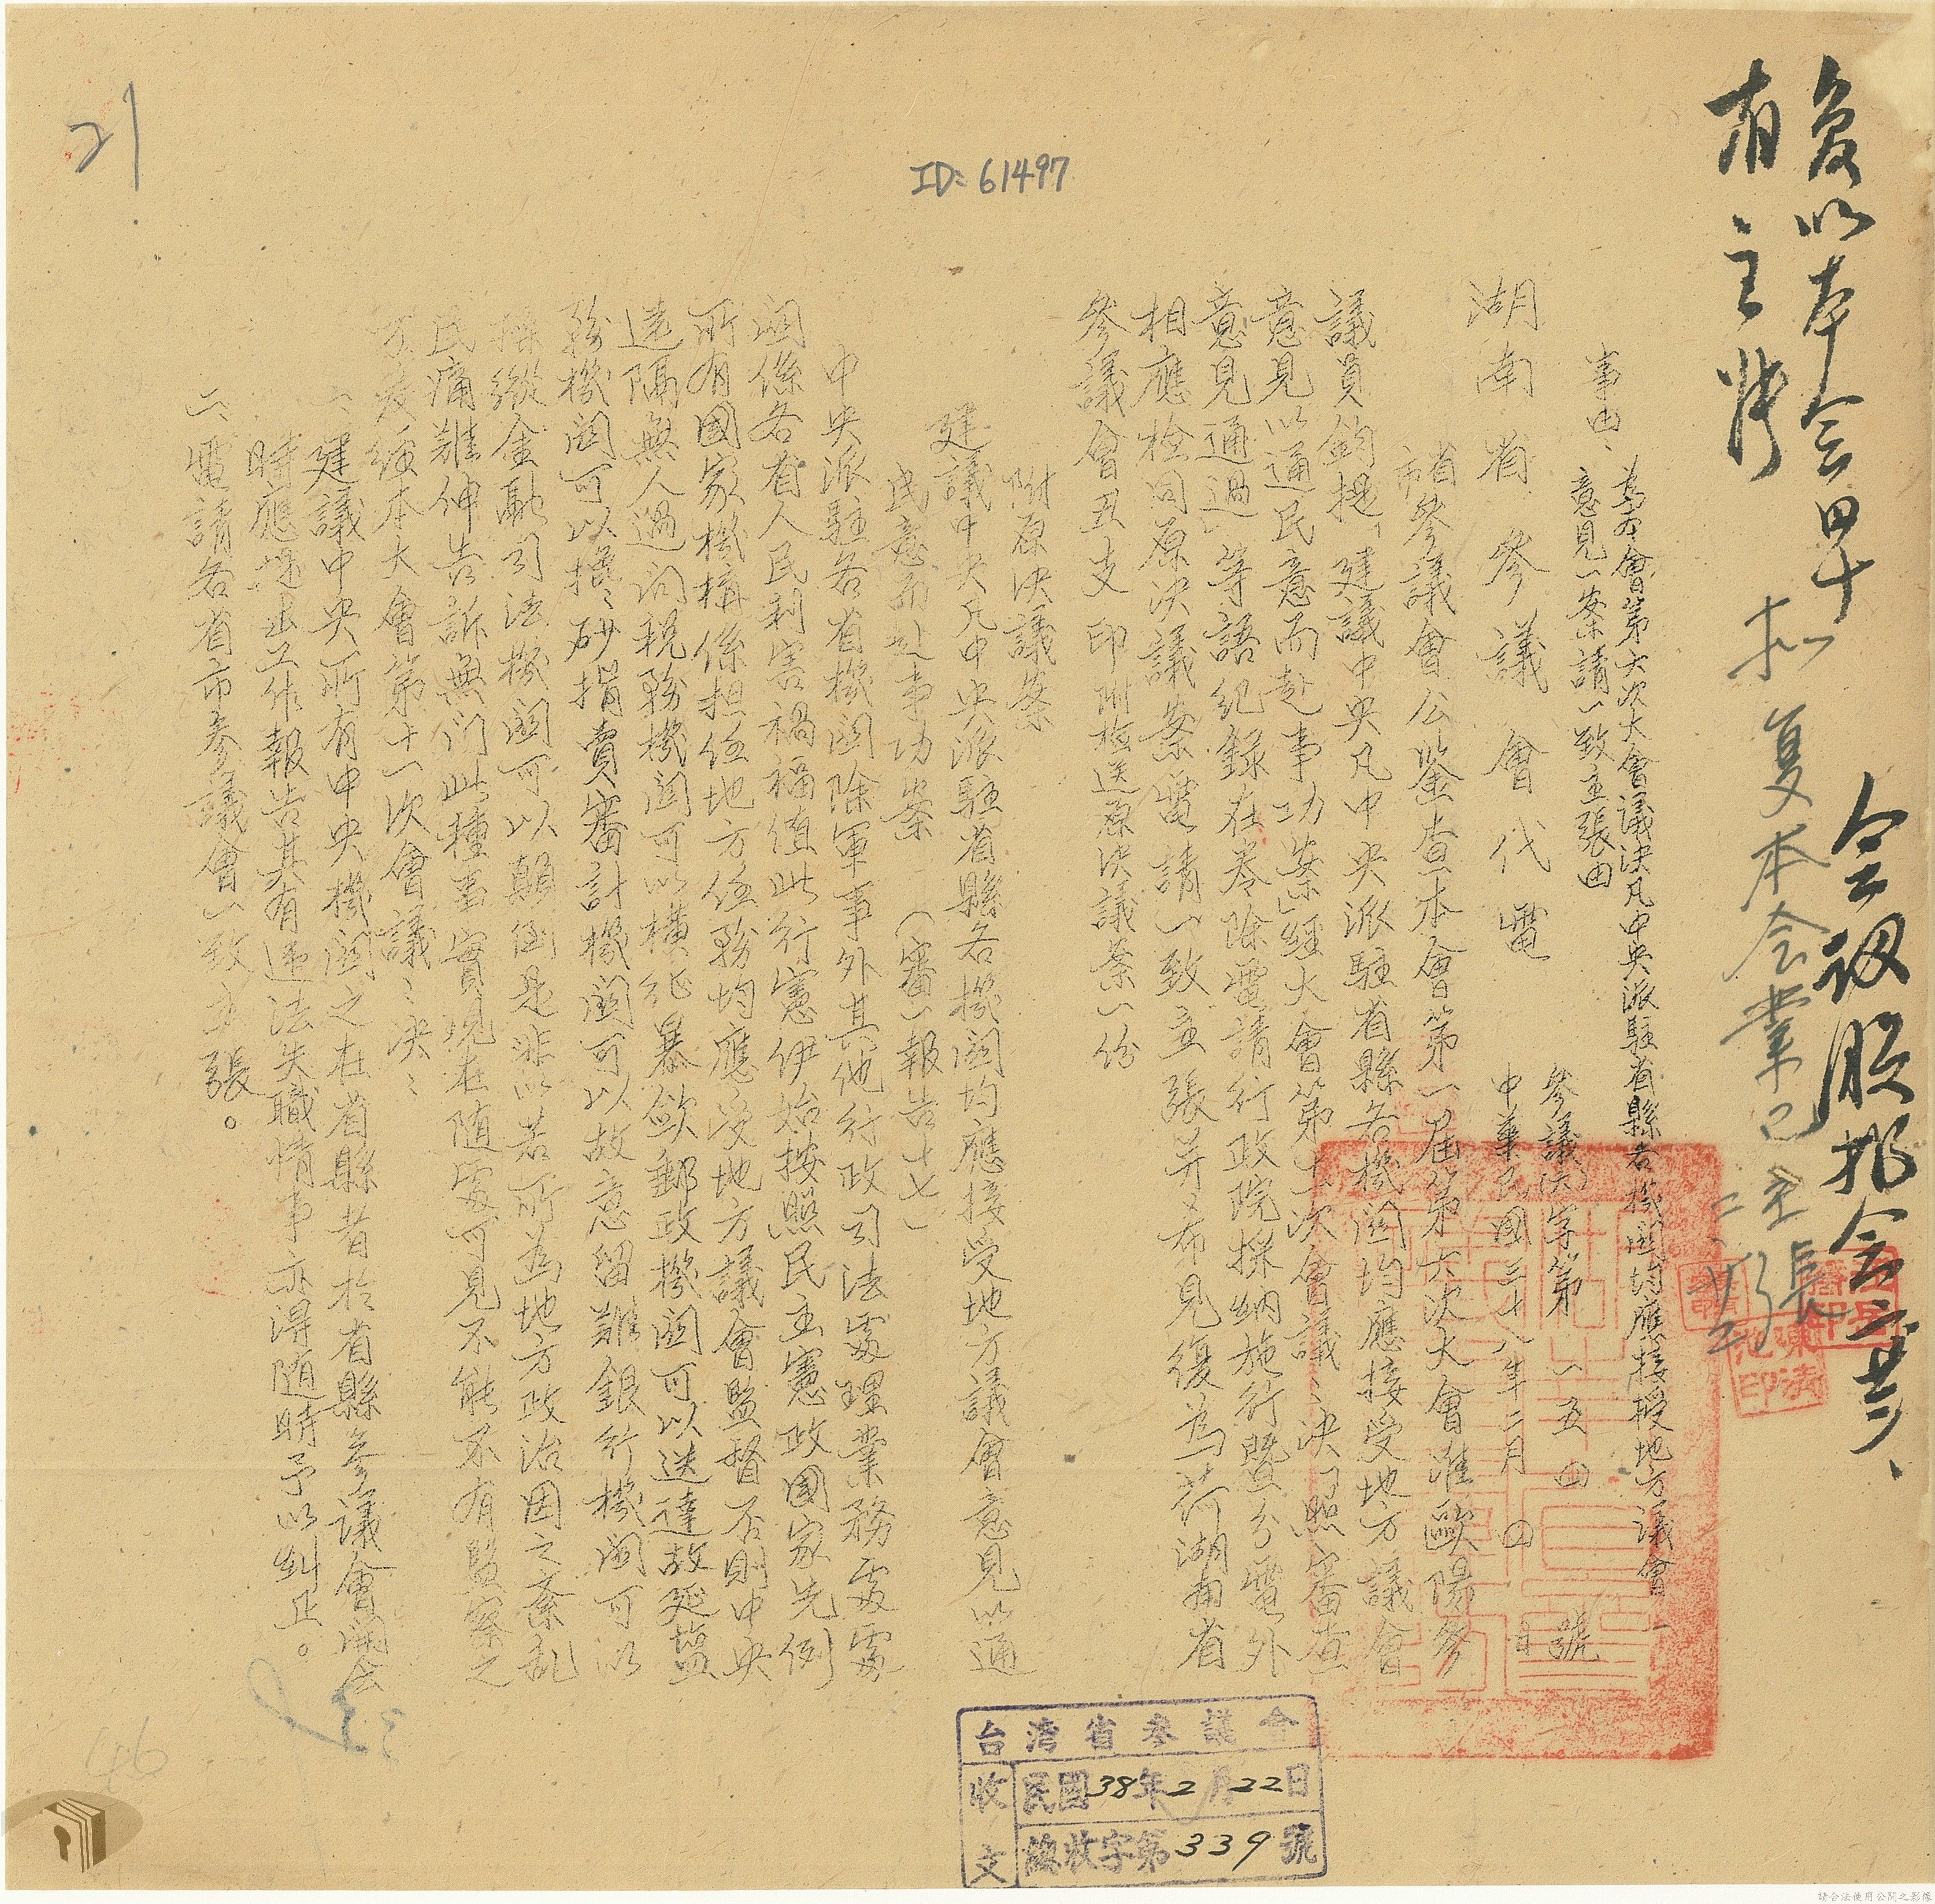 復以本会早
有主張
会議股北会
拟复本会業已主張
事由、為本會第六次大會議決凡中央派駐省縣各機関均應接授地方議會
意見一案請一致主張由
參議(決)字第一五四號
湖南省參議會代電
中華民國三十八年二月 日
省市參議會公鑒查本會第一屆第六次大會准歐陽參
議員鈞提「建議中央凡中央派駐省縣各機関均應接受地方議會
意見以通民意而赴事功案」經大會第十次會議：決『照審查
意見通過』等語紀錄在卷除電請行政院採納施行暨分電外
相應檢同原決議案電請一致主張并希見復為荷湖南省
參議會丑支印附檢送原決議案一份
附原決議案
建議中央凡中央派駐省縣各機関均應接受地方議會意見以通
民意而赴事功案（審一報告十七）
中央派駐各省機関除軍事外其他行政司法處理業務處處
関係各省人民利害禍福值此行憲伊始按照民主憲政國家先例
所有國家機構係担任地方任務均應受地方議會監督否則中央
遠隔無人過问稅務機関可以橫征暴歛郵政機関可以迭違故延鹽
務機関可以摻砂捐賣審計機関可以故意留難銀行機関可以
操縱金融司法機関可以顛倒是非以若所為地方政治因之紊乱
民痛難伸告訴無门此種事實現在随處可見不能不有監察之
可反經本大會第十一次會議：決：
一、建議中央所有中央機関之在省縣者於省縣參議會開会
時應提出工作報告其有违法失職情事亦得随時予以糾正。
二、電請各省市參議會一致主張。
台湾省參議会
收文
民國38年2月22日
總收字第339號
21
ID: 61497
46
請合法使用公開之影像